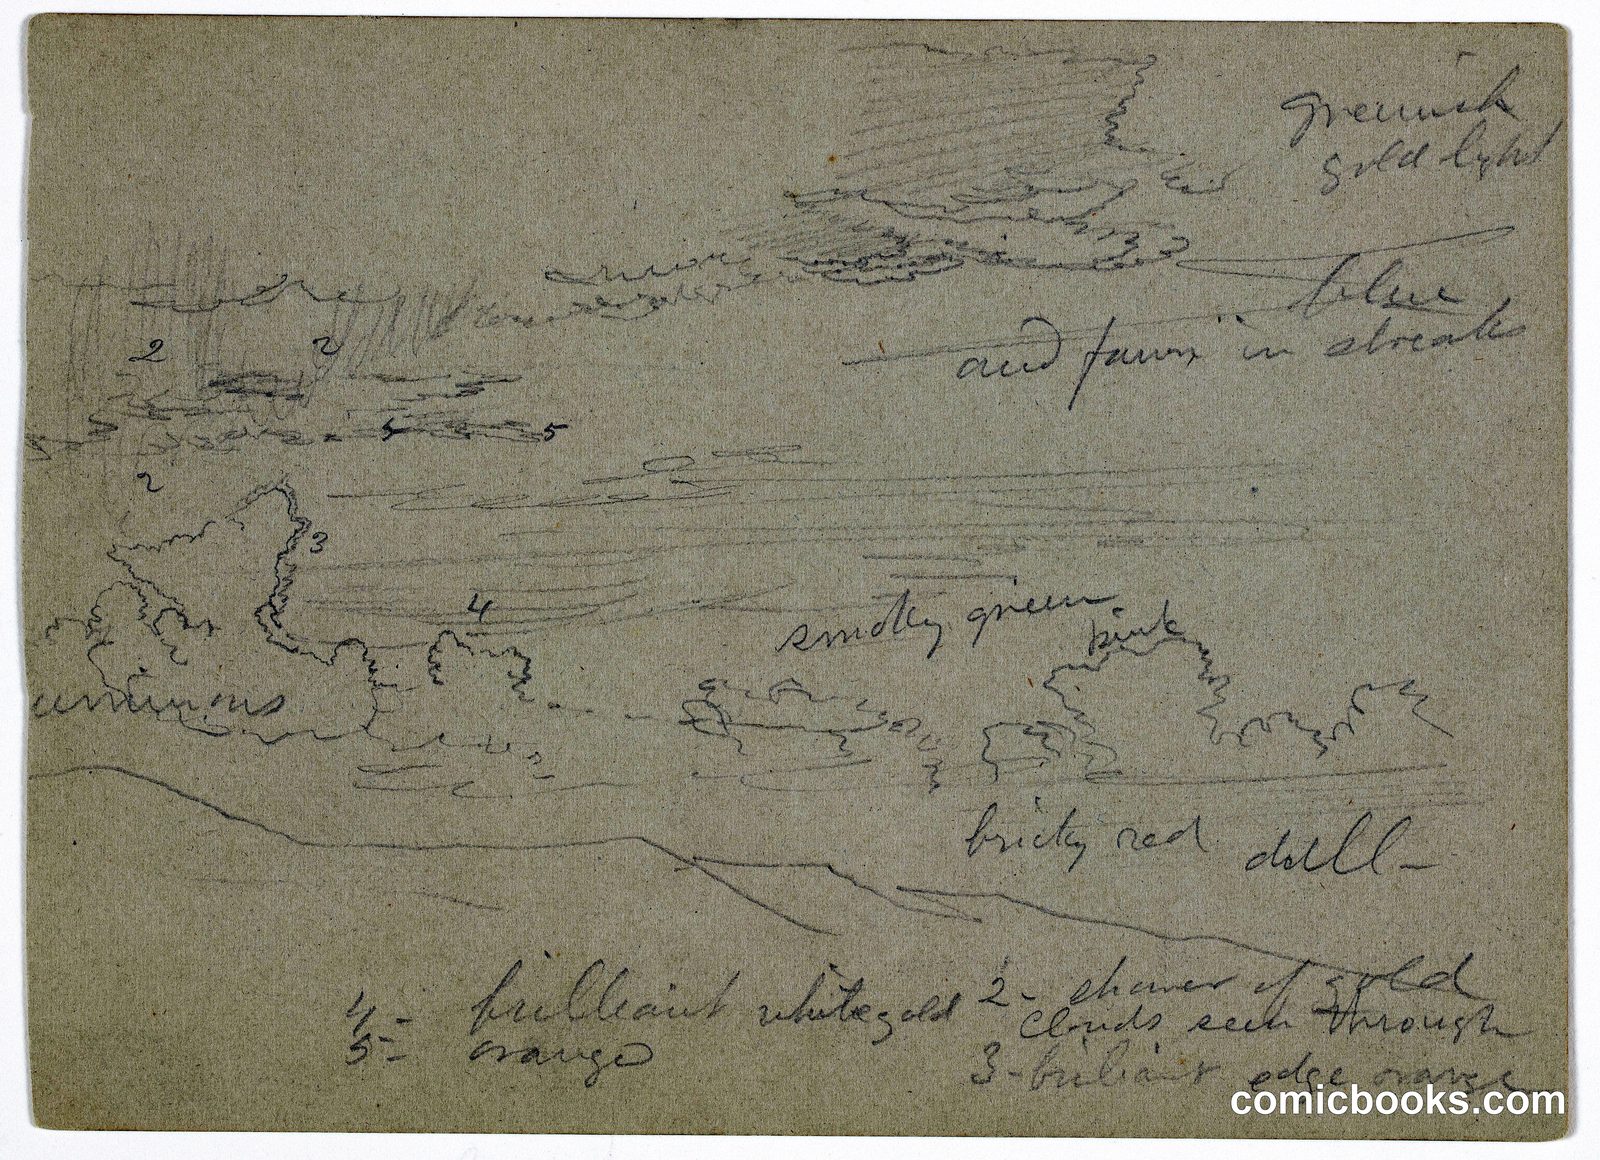 greenish
gold light
blue
and fawn in streaks
2 2
5 5
2
3
4
smoky green
pink
luminous
bricky red dull -
4 - brilliant white gold
5 - orange
2 - shower of gold
clouds seen through
3 - briliant edge orange
comicbooks.com